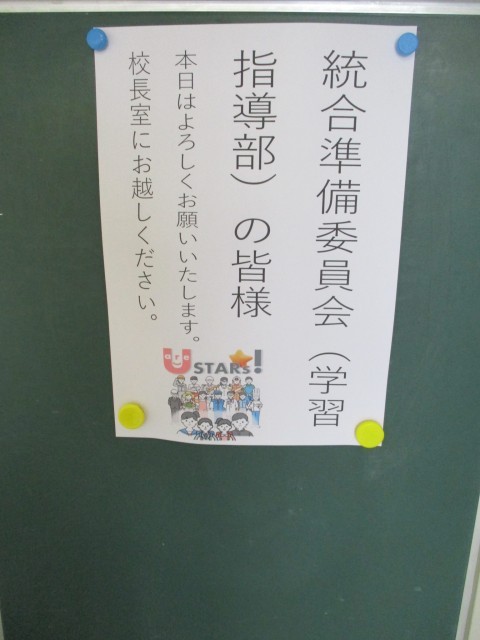 統合準備委員会（学習
指導部）の皆様
本日はよろしくお願いいたします。
校長室にお越しください。
U are
STARS!